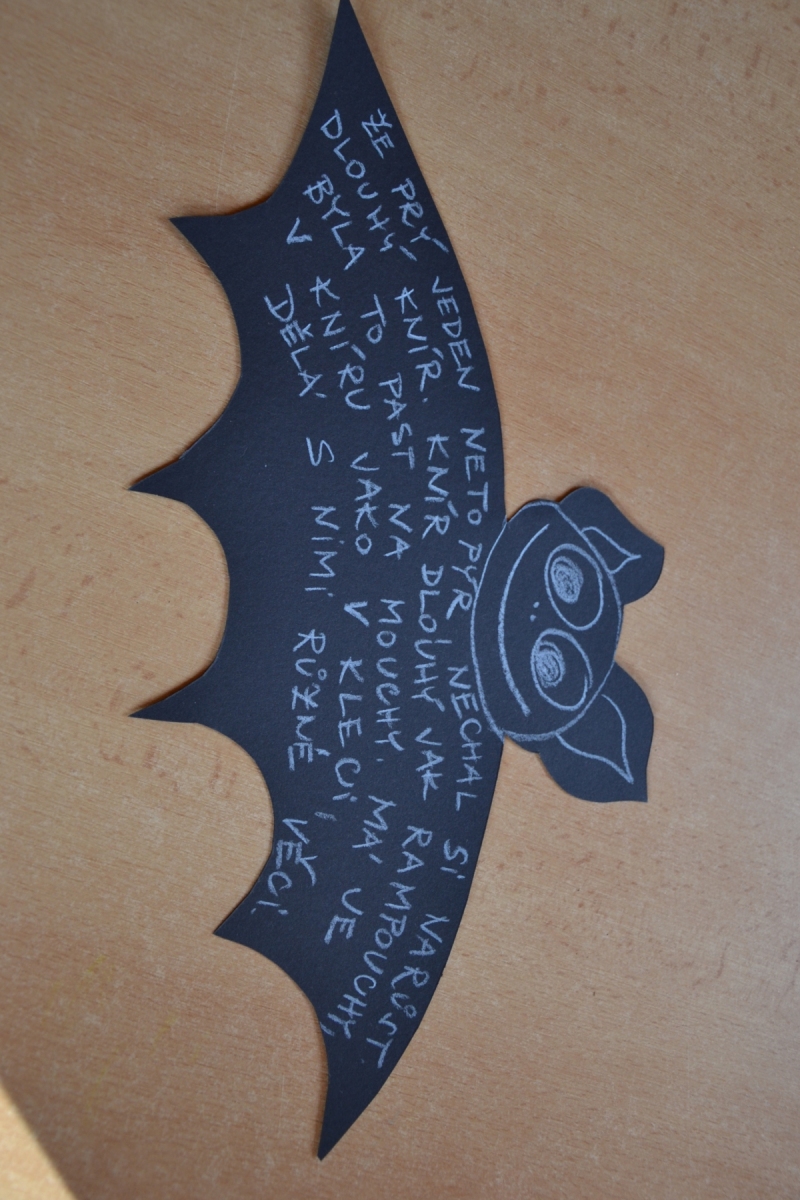 ŽE PRÝ JEDEN NETOPYR NECHAL SI NARŮST
DLOUHÝ KNÍR. KNÍR DLOUHÝ JAK RAMPOUCHY,
BYLA TO PAST NA MOUCHY. MÁ JE
V KNÍRU JAKO V KLECI,
DĚLÁ S NIMI RŮZNÉ VĚCI.